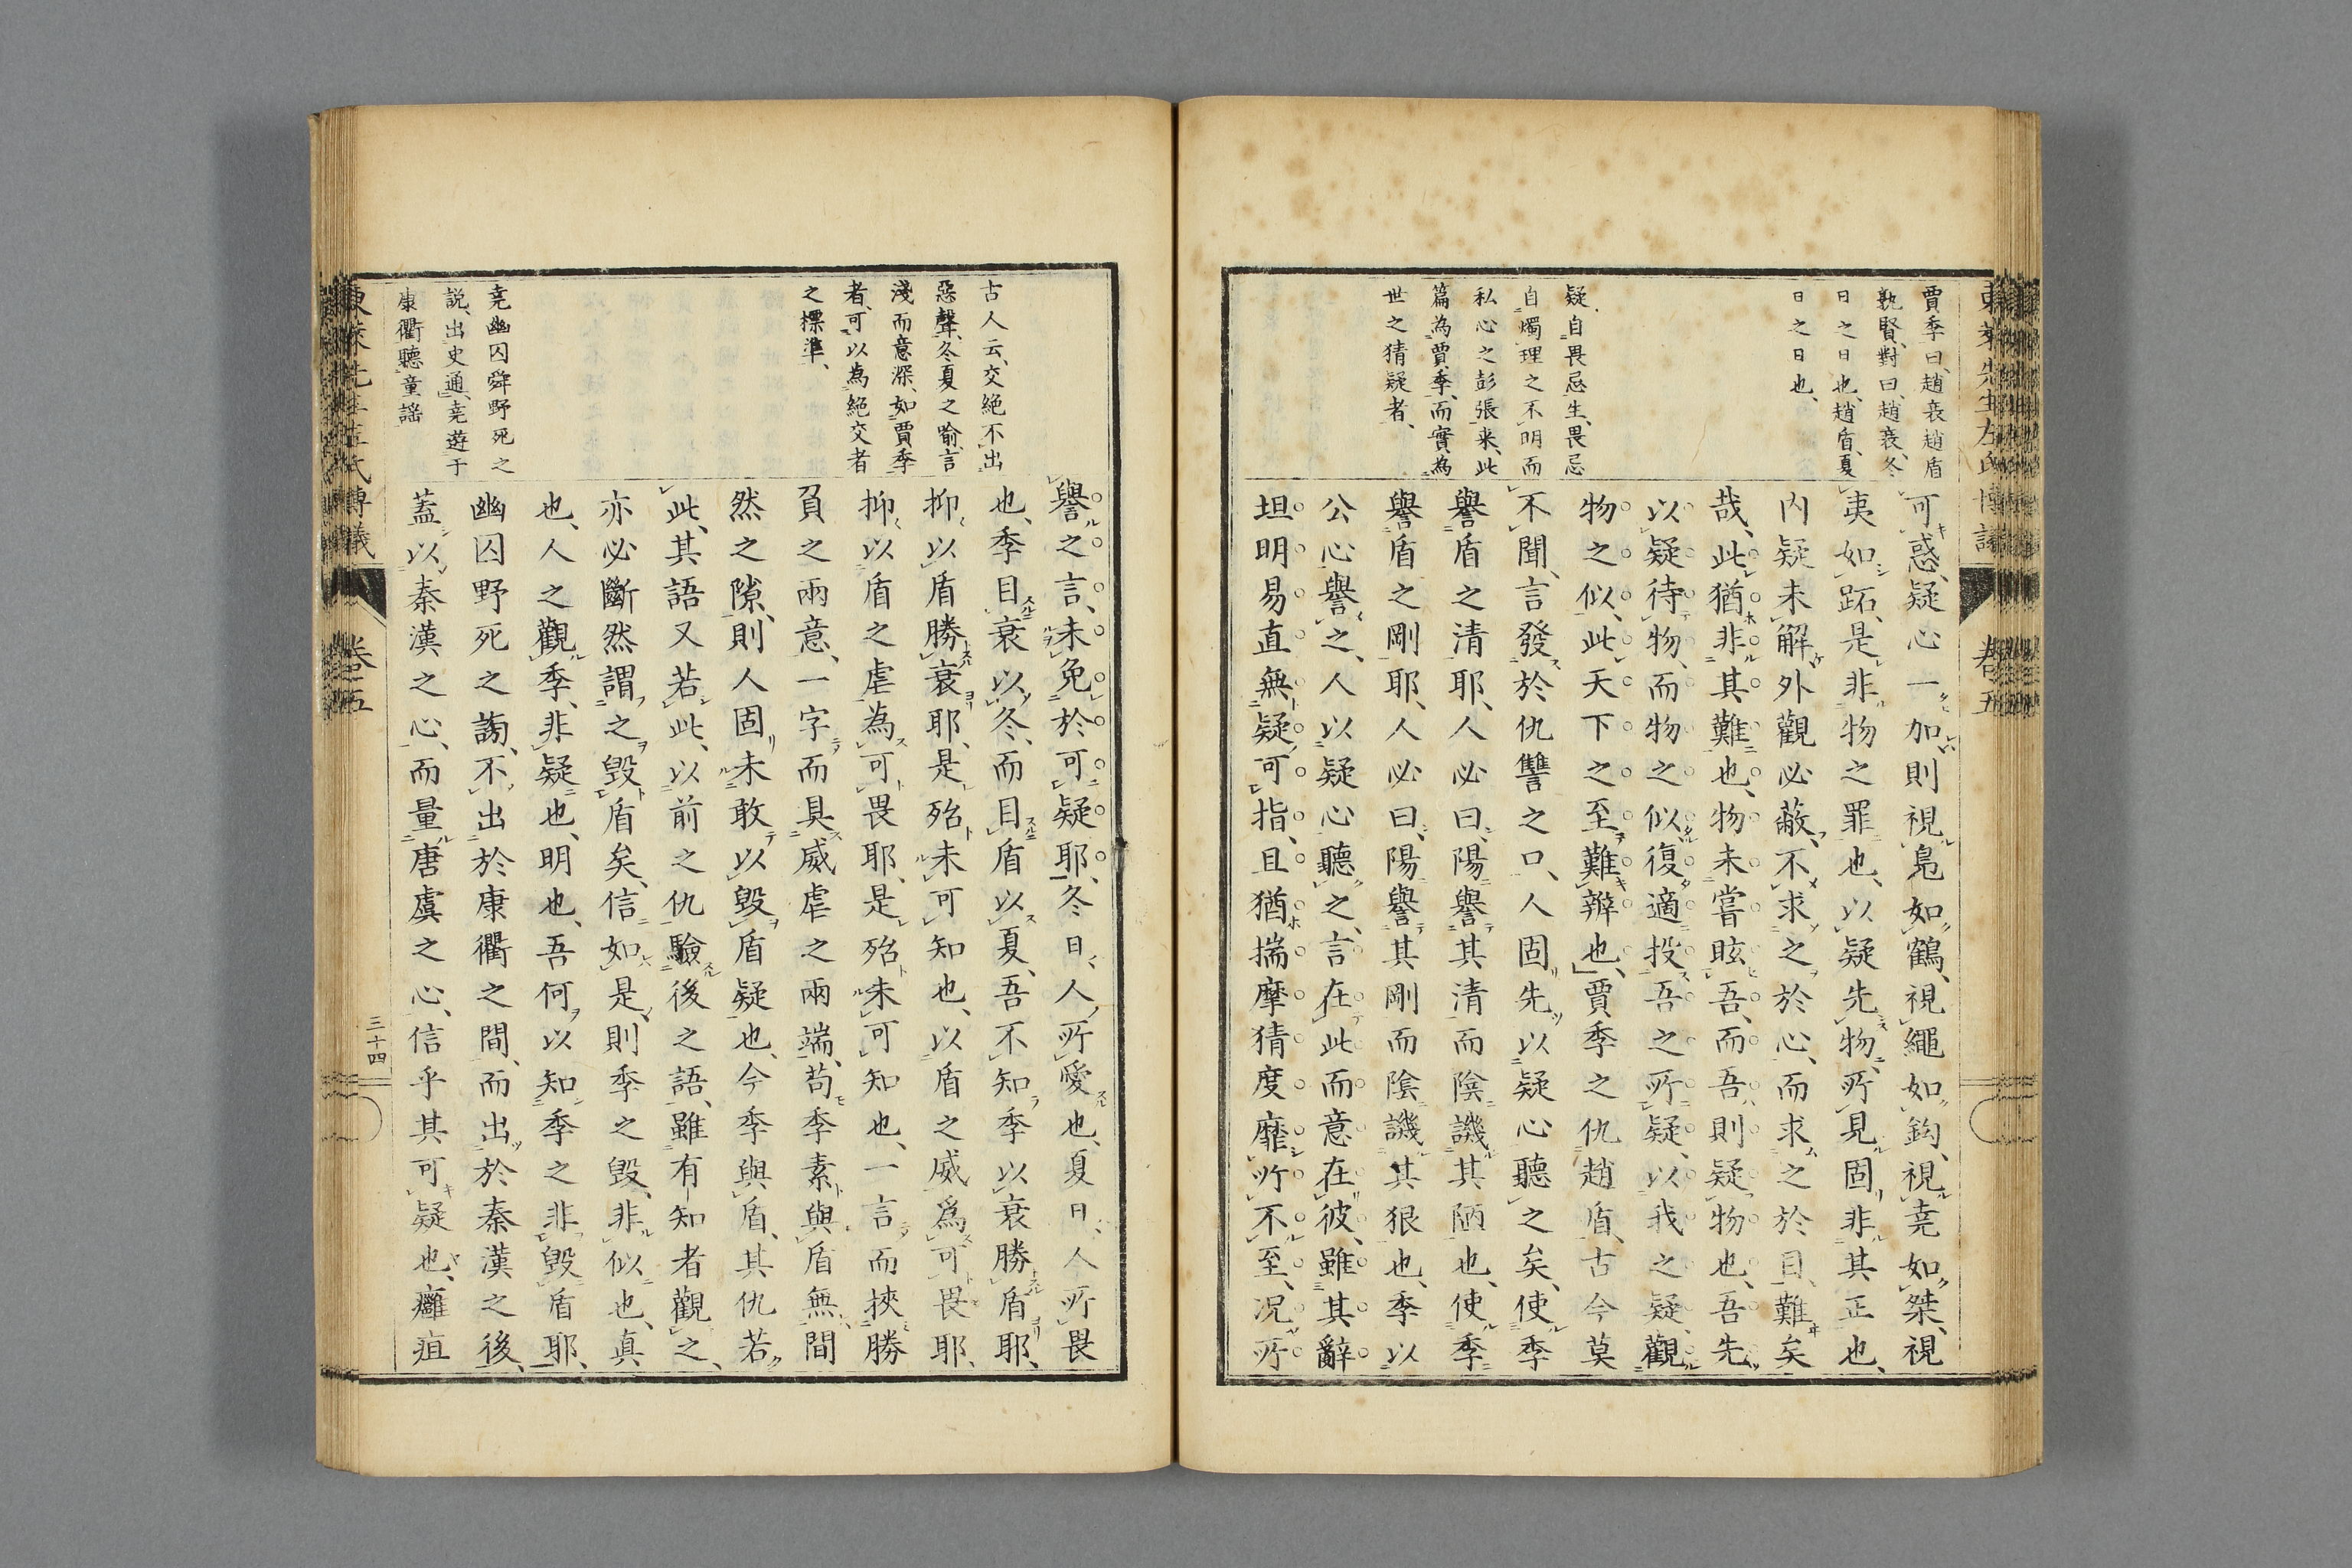 東萊先生左氏博議
卷五
賈季曰、趙衰趙盾
孰賢、對曰、趙衰、冬
日之日也、趙盾、夏
日之日也、
疑自畏忌生、畏忌
自燭理之不明而
私心之彭張来、此
篇為賈季、而實為
世之猜疑者、
可惑、疑心一加則視鳧如鶴、視繩如鈎、視堯如桀、視
夷如跖、是非物之罪也、以疑先物、所見固非其正也、
內疑未解外觀必蔽、不求之於心、而求之於目、難矣
哉、此猶非其難也、物未嘗眩吾、而吾則疑物也、吾先
以疑待物、而物之似復適投吾之所疑、以我之疑、觀
物之似、此天下之至難辯也、賈季之仇趙盾、古今莫
不聞、言發於仇讐之口、人固先以疑心聽之矣、使季
譽盾之清耶、人必曰、陽譽其清而陰譏其陋也、使季
譽盾之剛耶、人必曰、陽譽其剛而陰譏其狠也、季以
公心譽之、人以疑心聽之、言在此而意在彼、雖其辭
坦明易直無疑可指、且猶揣摩猜度靡所不至、況所
古人云、交絶不出
惡聲、冬夏之喻、言
淺而意深、如賈季
者、可以為絶交者
之標準、
堯幽囚舜野死之
説、出史通、堯遊于
康衢聽童謡
譽之言、未免於可疑耶、冬日、人所愛也、夏日、人所畏
也、季目衰以冬、而目盾以夏、吾不知季以衰勝盾耶、
抑以盾勝衰耶、是殆未可知也、以盾之威爲可畏耶、
抑以盾之虐為可畏耶、是殆未可知也、一言而挾勝
負之兩意、一字而具威虐之兩端、茍季素與盾無間
然之隙、則人固未敢以毀盾疑也、今季與盾、其仇若
此、其語又若此、以前之仇驗後之語、雖有知者觀之、
亦必斷然謂之毀盾矣、信如是、則季之毀、非似也、真
也、人之觀季、非疑也、明也、吾何以知季之非毀盾耶、
幽囚野死之謗、不出於康衢之間、而出於秦漢之後、
蓋以秦漢之心、而量唐虞之心、信乎其可疑也、癰疽
東萊先生左氏博議
卷五
三十四